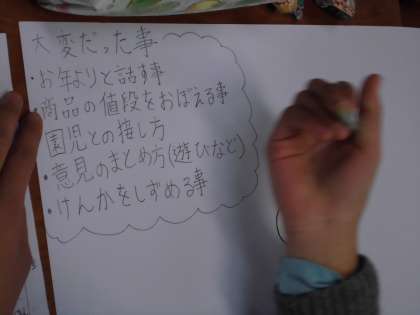 大変だった事
・お年よりと話す事
・商品の値段をおぼえる事
園児との接し方
・意見のまとめ方(遊びなど)
・けんかをしずめる事